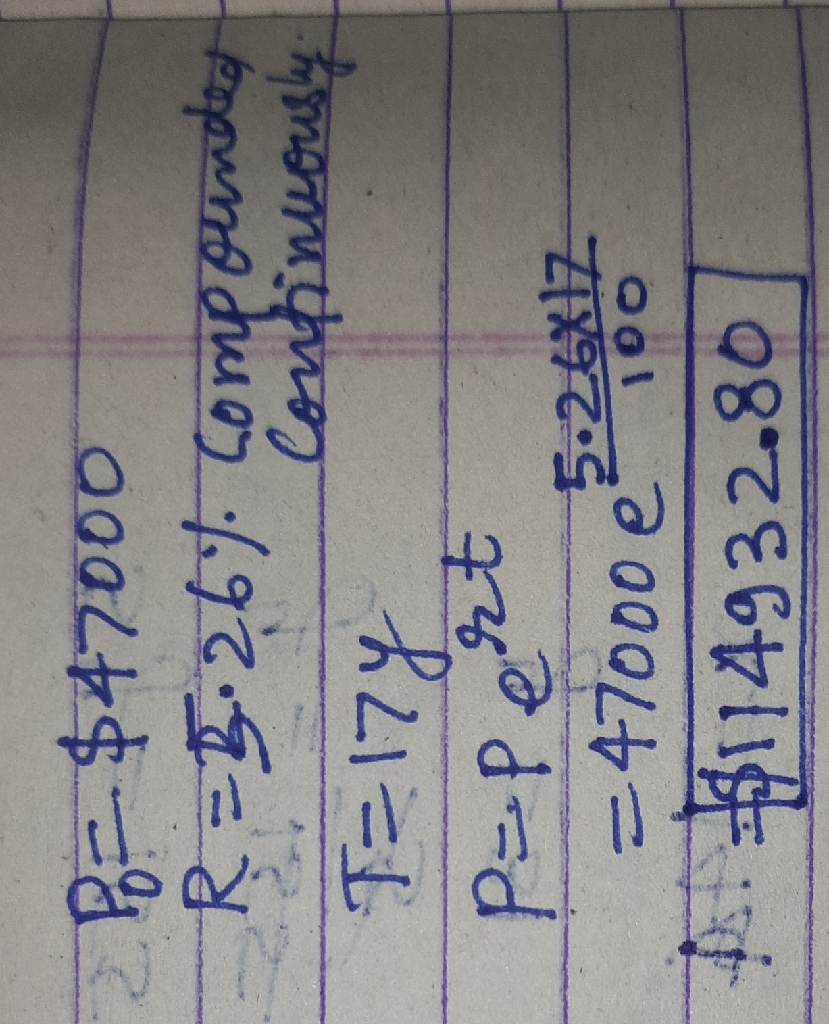 P₀ = $47000
R = 5.26% Compounded
Continuously.
T = 17y
P = P e^rt
= 47000 e^(5.26×17/100)
= $114932.80